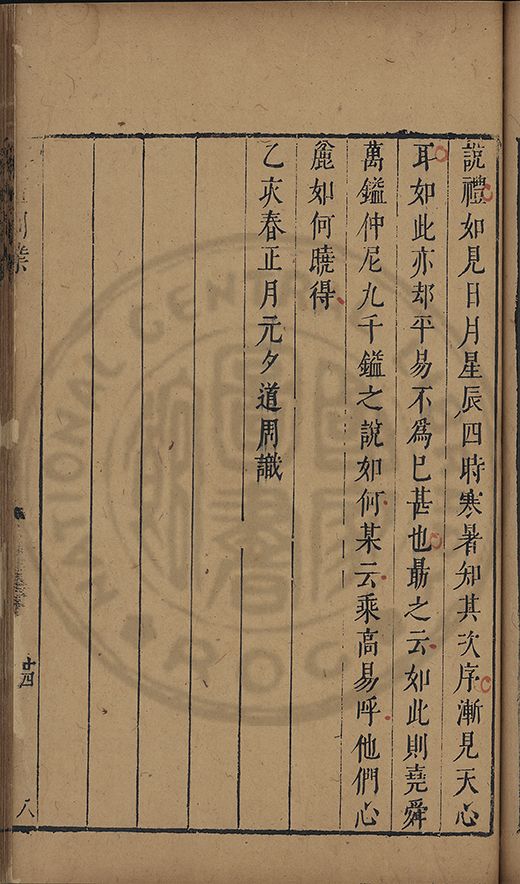 說禮如見日月星辰四時寒暑知其次序漸見天心
耳如此亦却平易不爲已甚也最之云如此則堯舜
萬鎰仲尼九千鎰之說如何某云乘高易呼他們心
麄如何曉得
乙亥春正月元夕道周識
業
十四
八